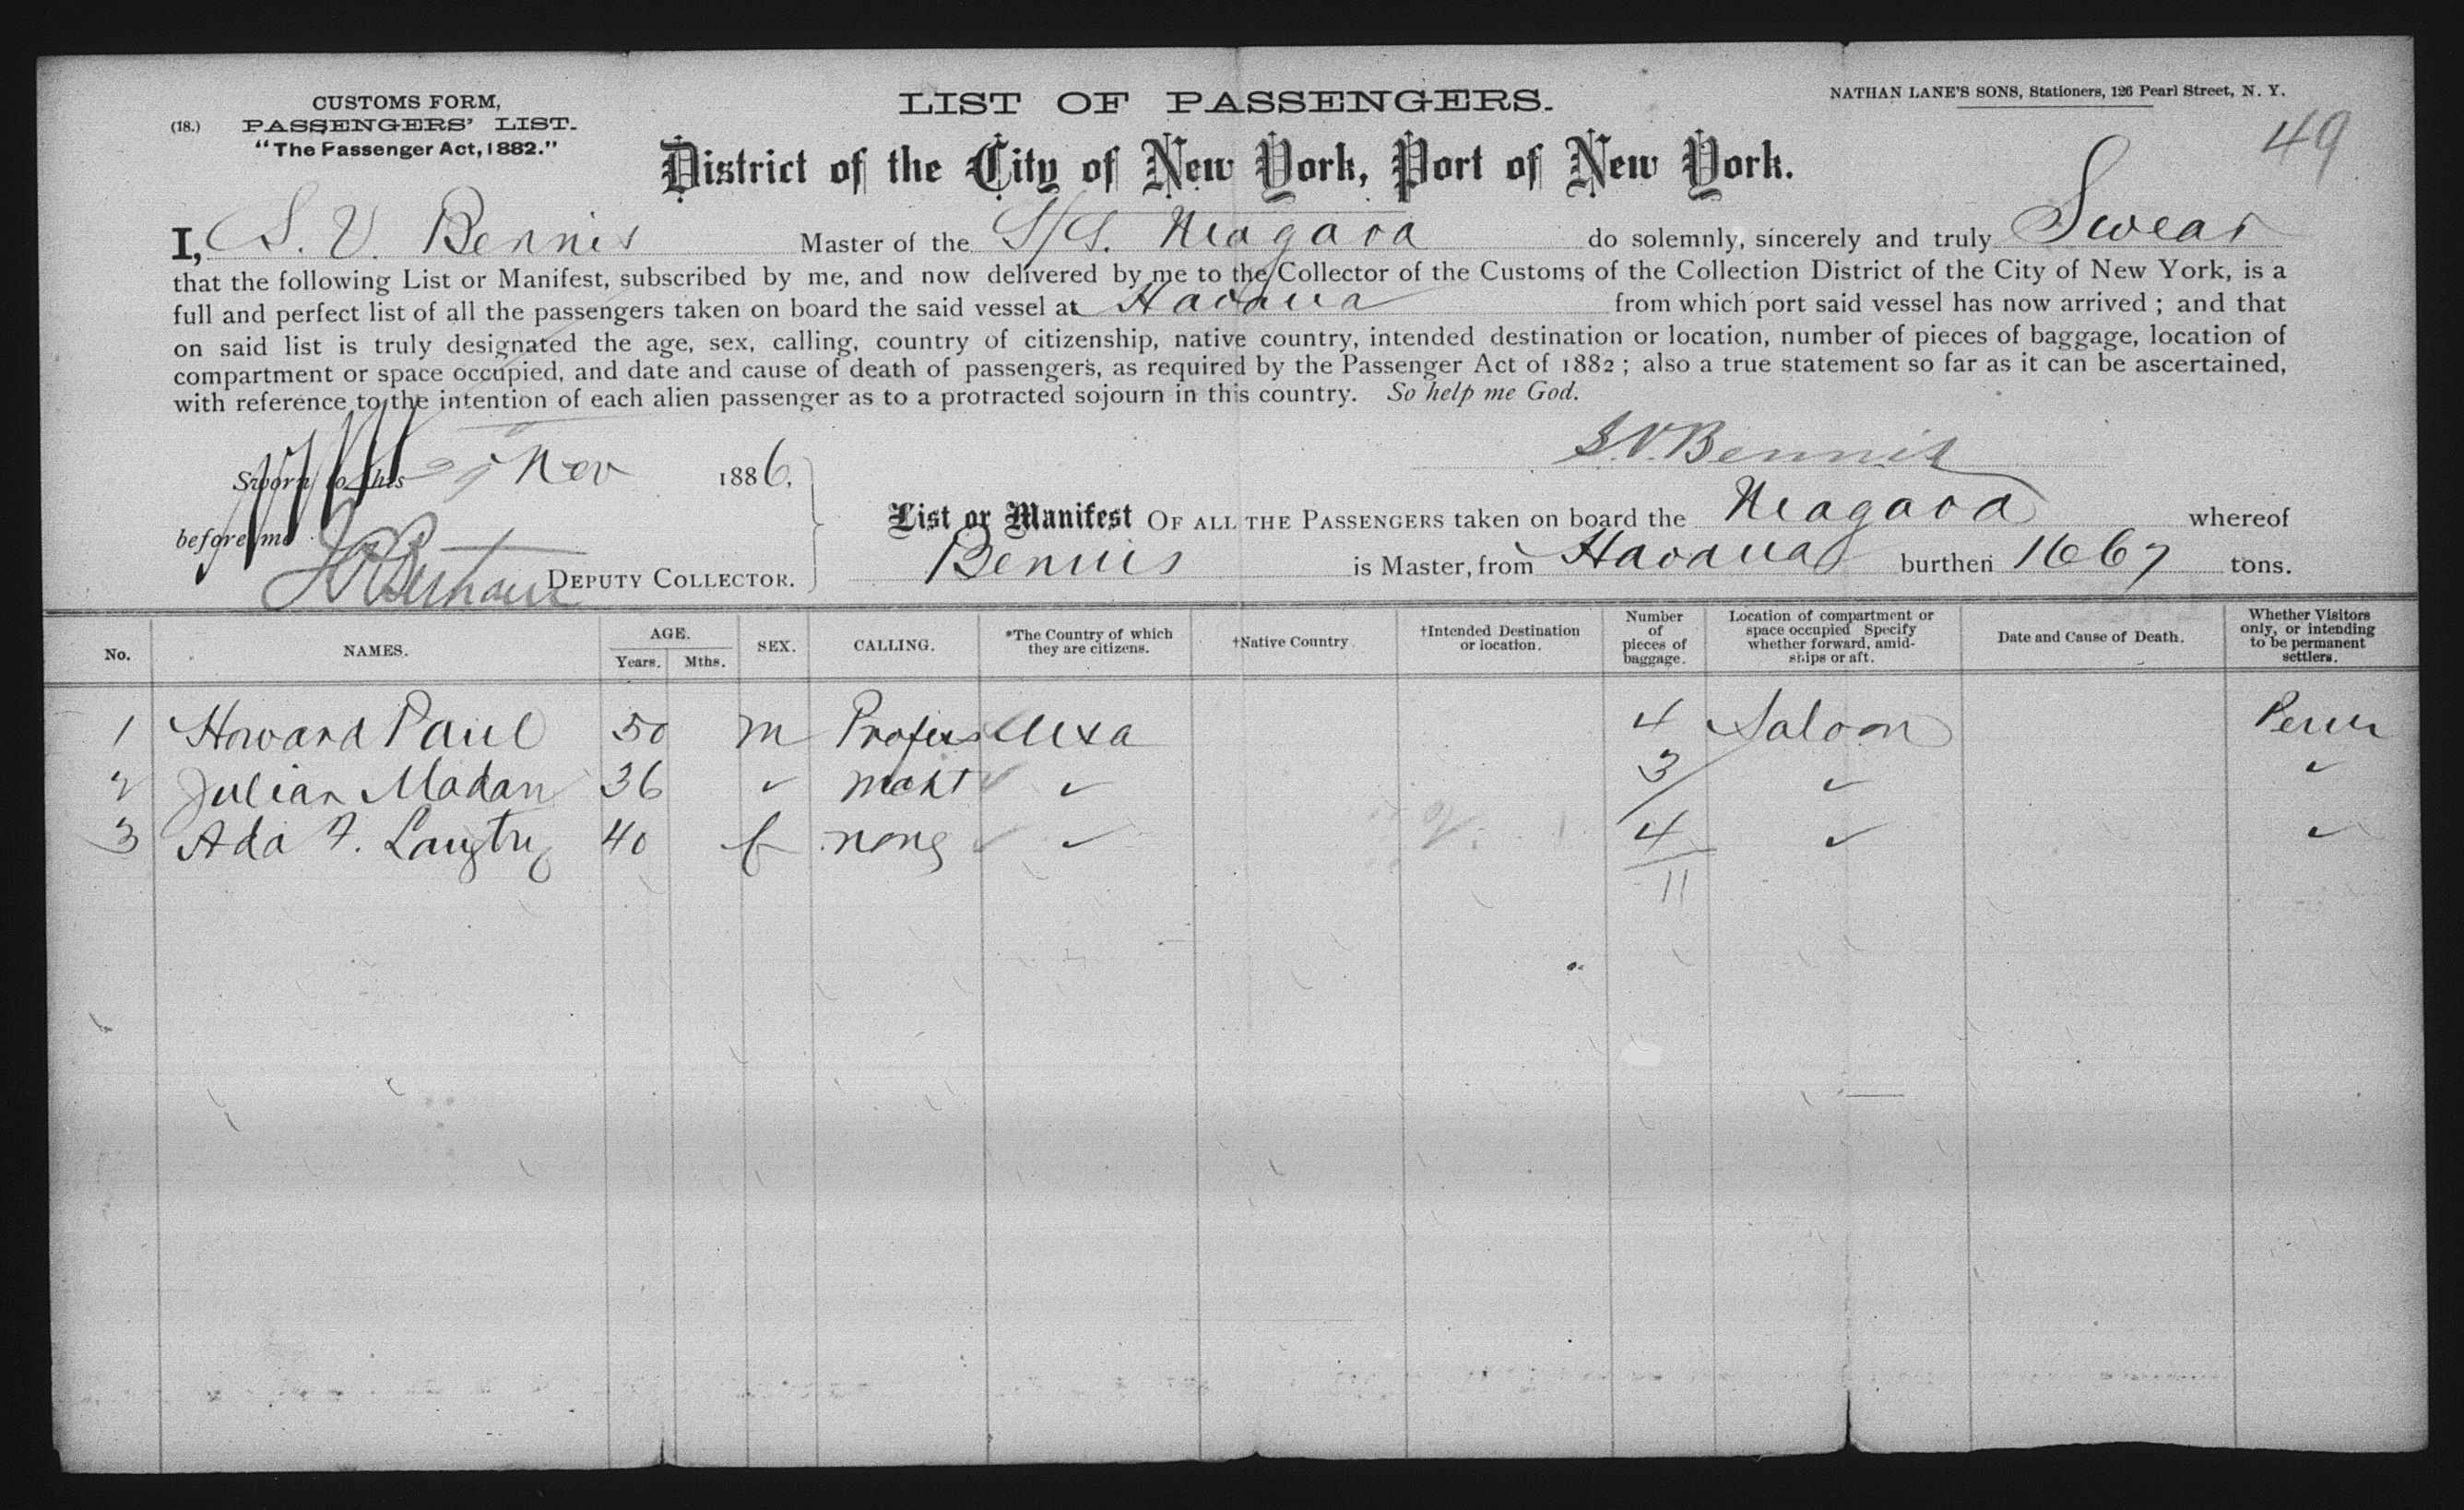 CUSTOMS FORM,
(18.) PASSENGERS' LIST.
"The Passenger Act, 1882."
LIST OF PASSENGERS.
NATHAN LANE'S SONS, Stationers, 126 Pearl Street, N. Y.
49
District of the City of New York, Port of New York.
I, S. V. Bennis Master of the S/S. Niagara do solemnly, sincerely and truly Swear
that the following List or Manifest, subscribed by me, and now delivered by me to the Collector of the Customs of the Collection District of the City of New York, is a
full and perfect list of all the passengers taken on board the said vessel at Havana from which port said vessel has now arrived ; and that
on said list is truly designated the age, sex, calling, country of citizenship, native country, intended destination or location, number of pieces of baggage, location of
compartment or space occupied, and date and cause of death of passengers, as required by the Passenger Act of 1882 ; also a true statement so far as it can be ascertained,
with reference to the intention of each alien passenger as to a protracted sojourn in this country. So help me God.
S.V. Bennis
Sworn to this Nov 1886,
before me
DEPUTY COLLECTOR.
List or Manifest OF ALL THE PASSENGERS taken on board the Niagara whereof
Bennis is Master, from Havana burthen 1667 tons.
No. NAMES. AGE. Years. Mths. SEX. CALLING. *The Country of which they are citizens. †Native Country. †Intended Destination or location. Number of pieces of baggage. Location of compartment or space occupied Specify whether forward, amid-ships or aft. Date and Cause of Death. Whether Visitors only, or intending to be permanent settlers.
1 Howard Paul 50 m Profess USA 4 Saloon Perm
2 Julian Madan 36 ✓ mcht ✓ 3 ✓ ✓
3 Ada F. Langtry 40 f none ✓ 4 ✓ ✓
11